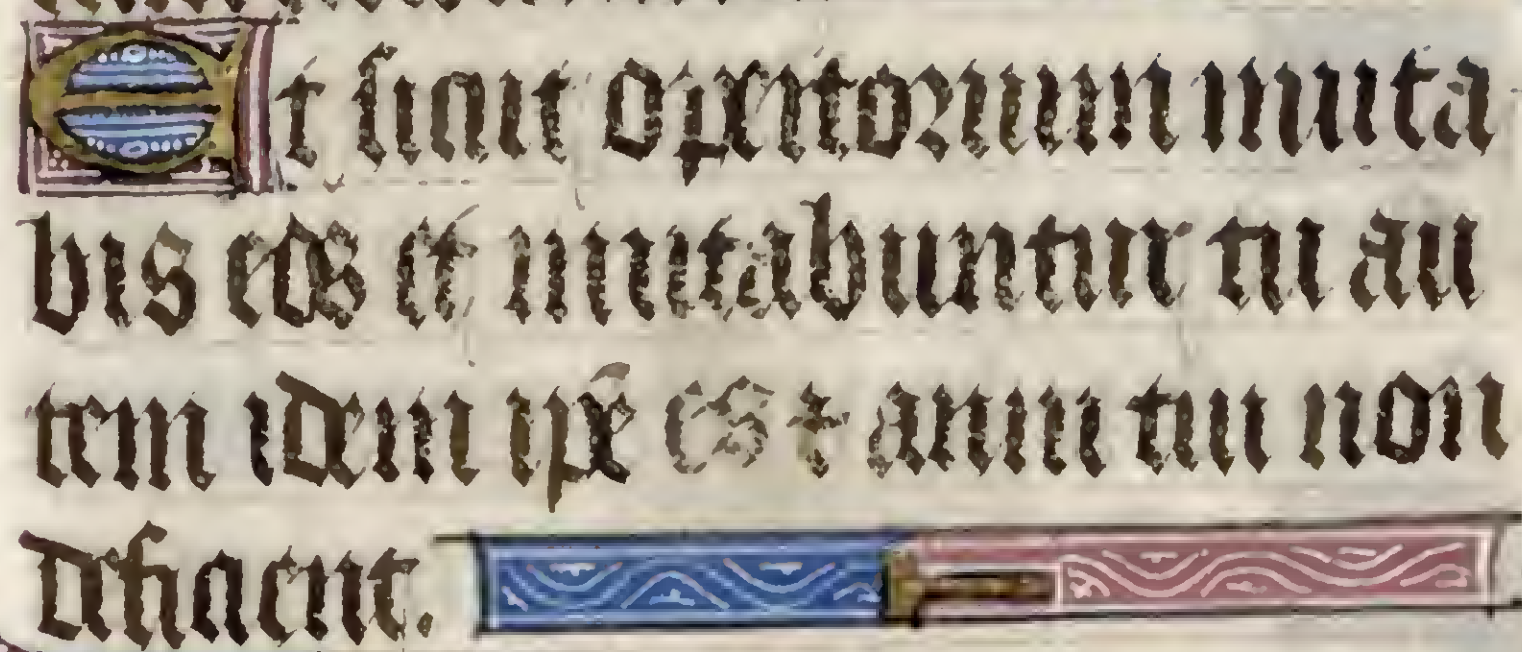 Et sicut opertorium muta
bis eos et mutabuntur tu au
tem idem ipse es ⁊ anni tui non
deficient.